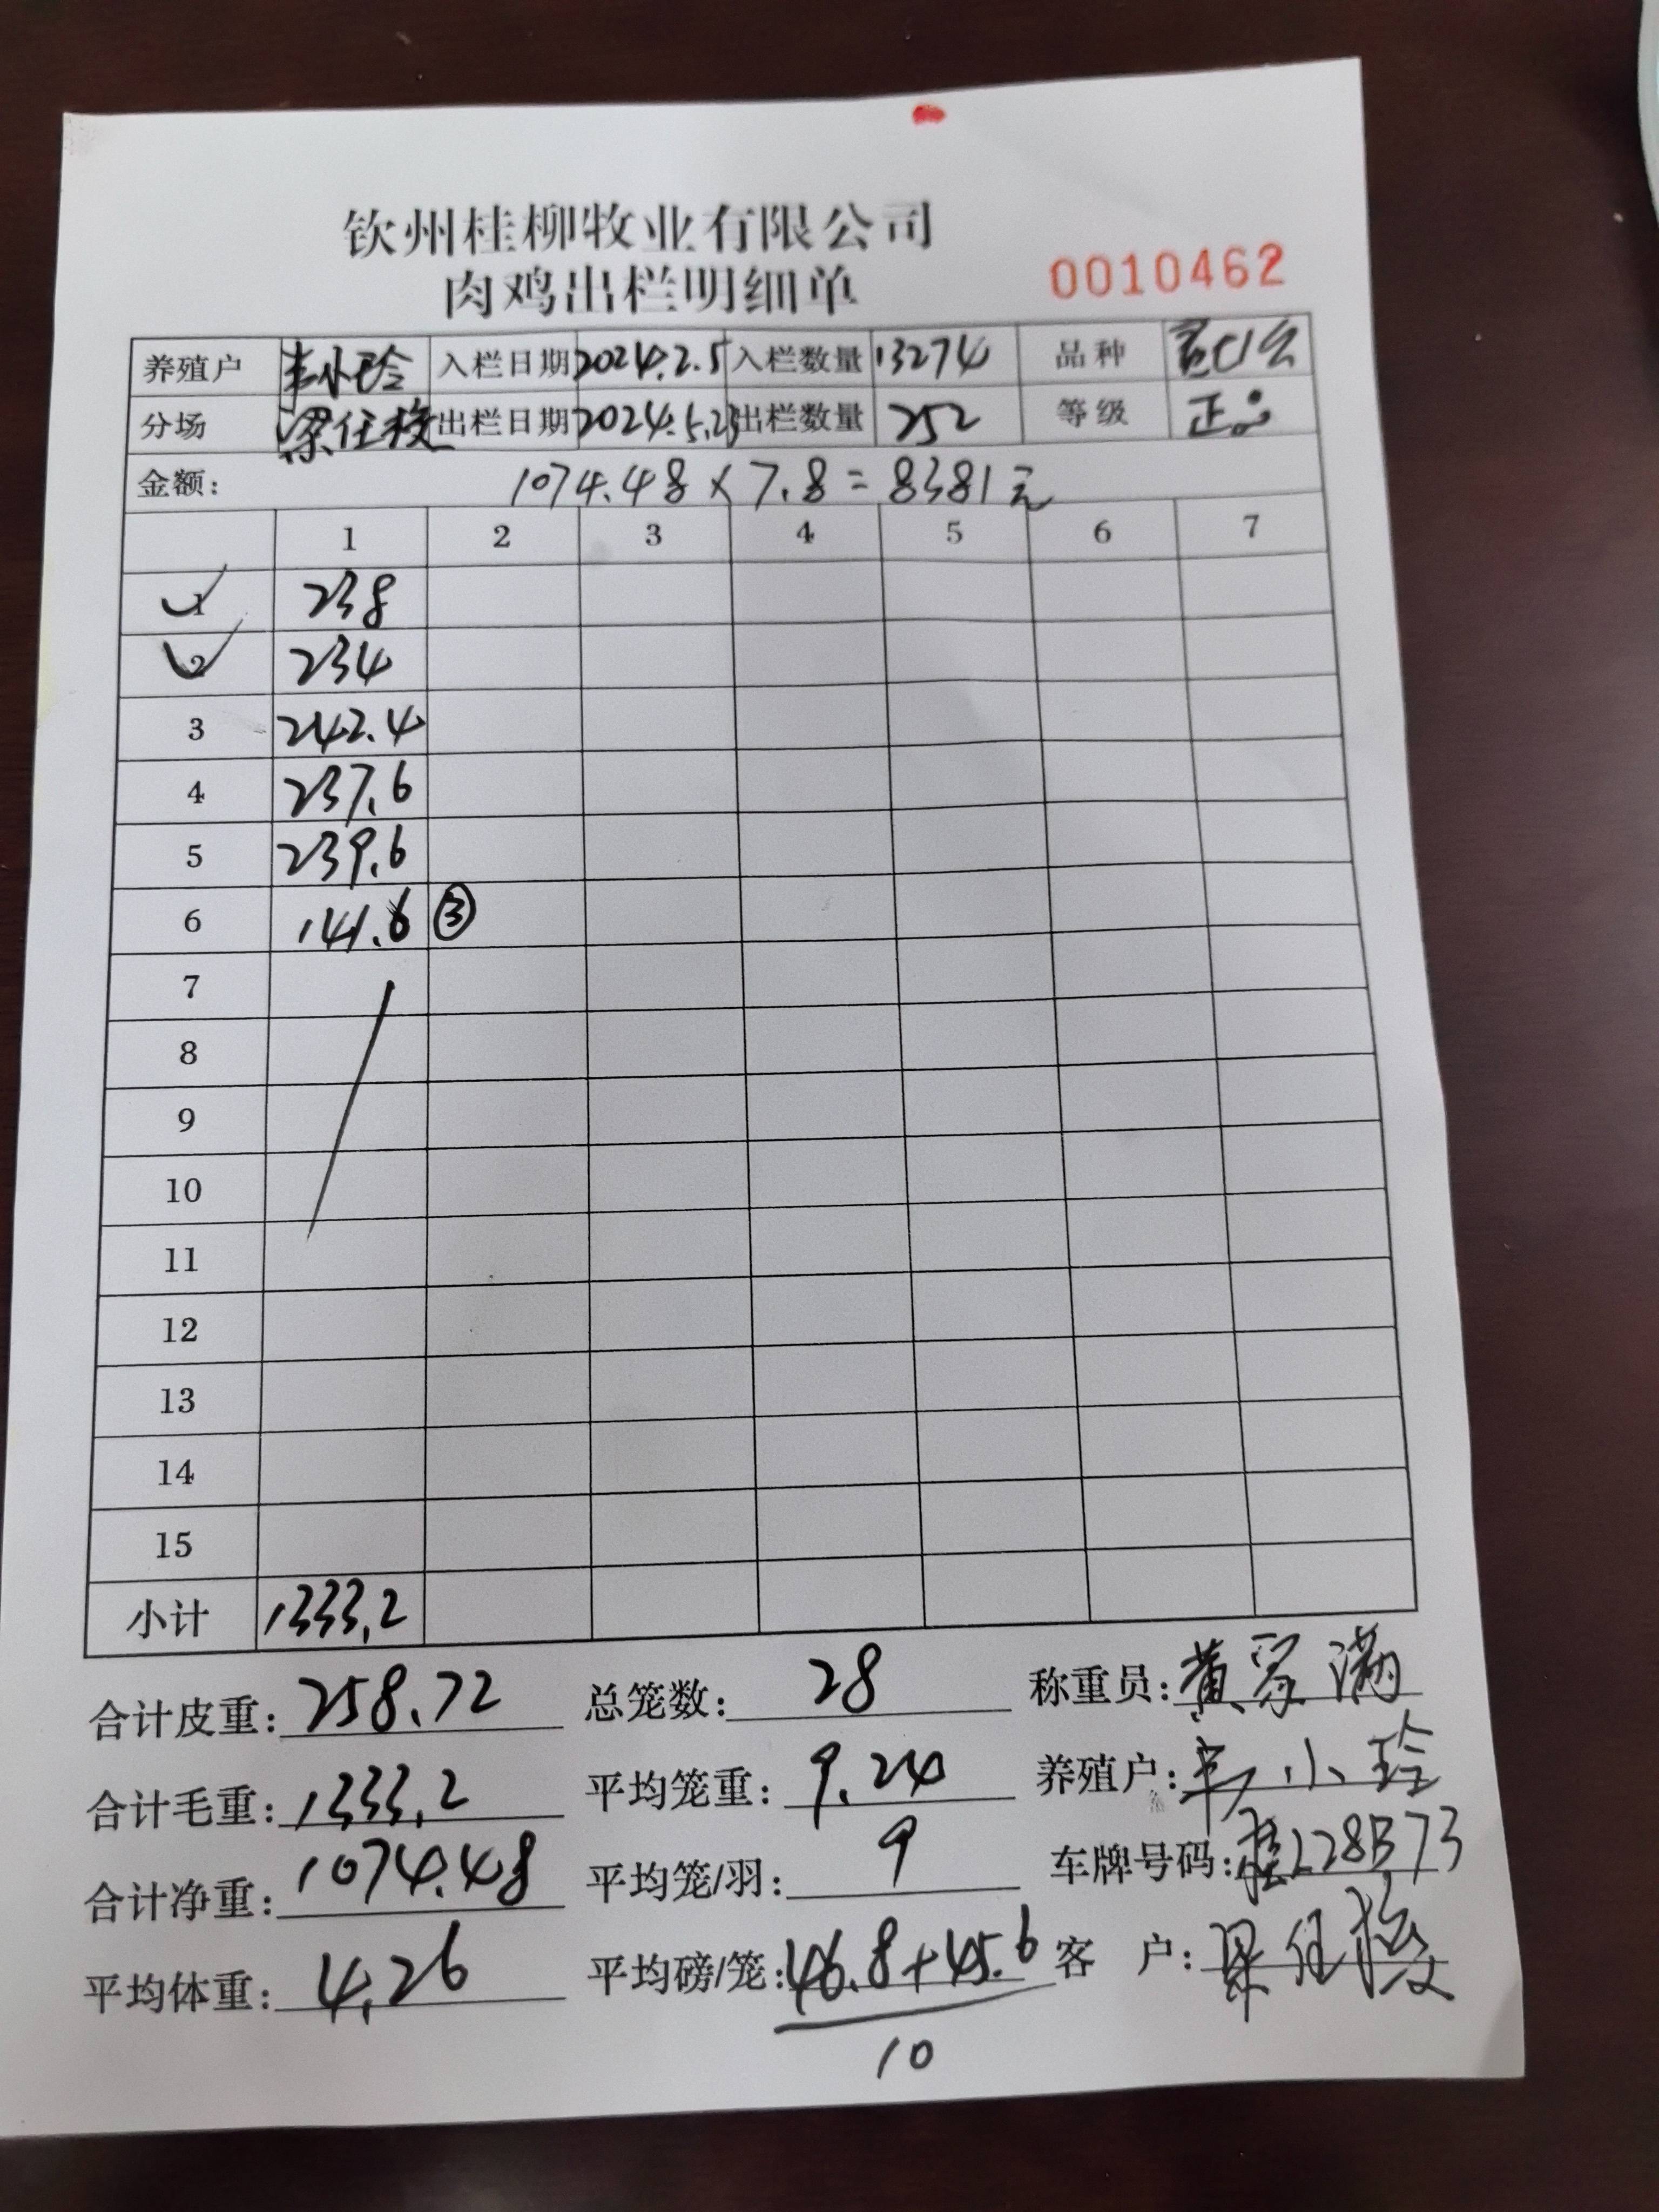 钦州桂柳牧业有限公司
肉鸡出栏明细单 0010462
养殖户 韦小玲 入栏日期 2024.2.5 入栏数量 13274 品种
分场 梁任 出栏日期 2024.5.23 出栏数量 252 等级 正品
金额: 1074.48×7.8=8381元
1 2 3 4 5 6 7
1 238
2 234
3 242.4
4 237.6
5 239.6
6 141.6 ③
7
8
9
10
11
12
13
14
15
小计 1333.2
合计皮重: 258.72 总笼数: 28 称重员: 黄家满
合计毛重: 1333.2 平均笼重: 9.24 养殖户: 韦小玲
合计净重: 1074.48 平均笼/羽: 9 车牌号码: 桂L28B73
平均体重: 4.26 平均磅/笼: 46.8+45.6 客 户: 梁任
10